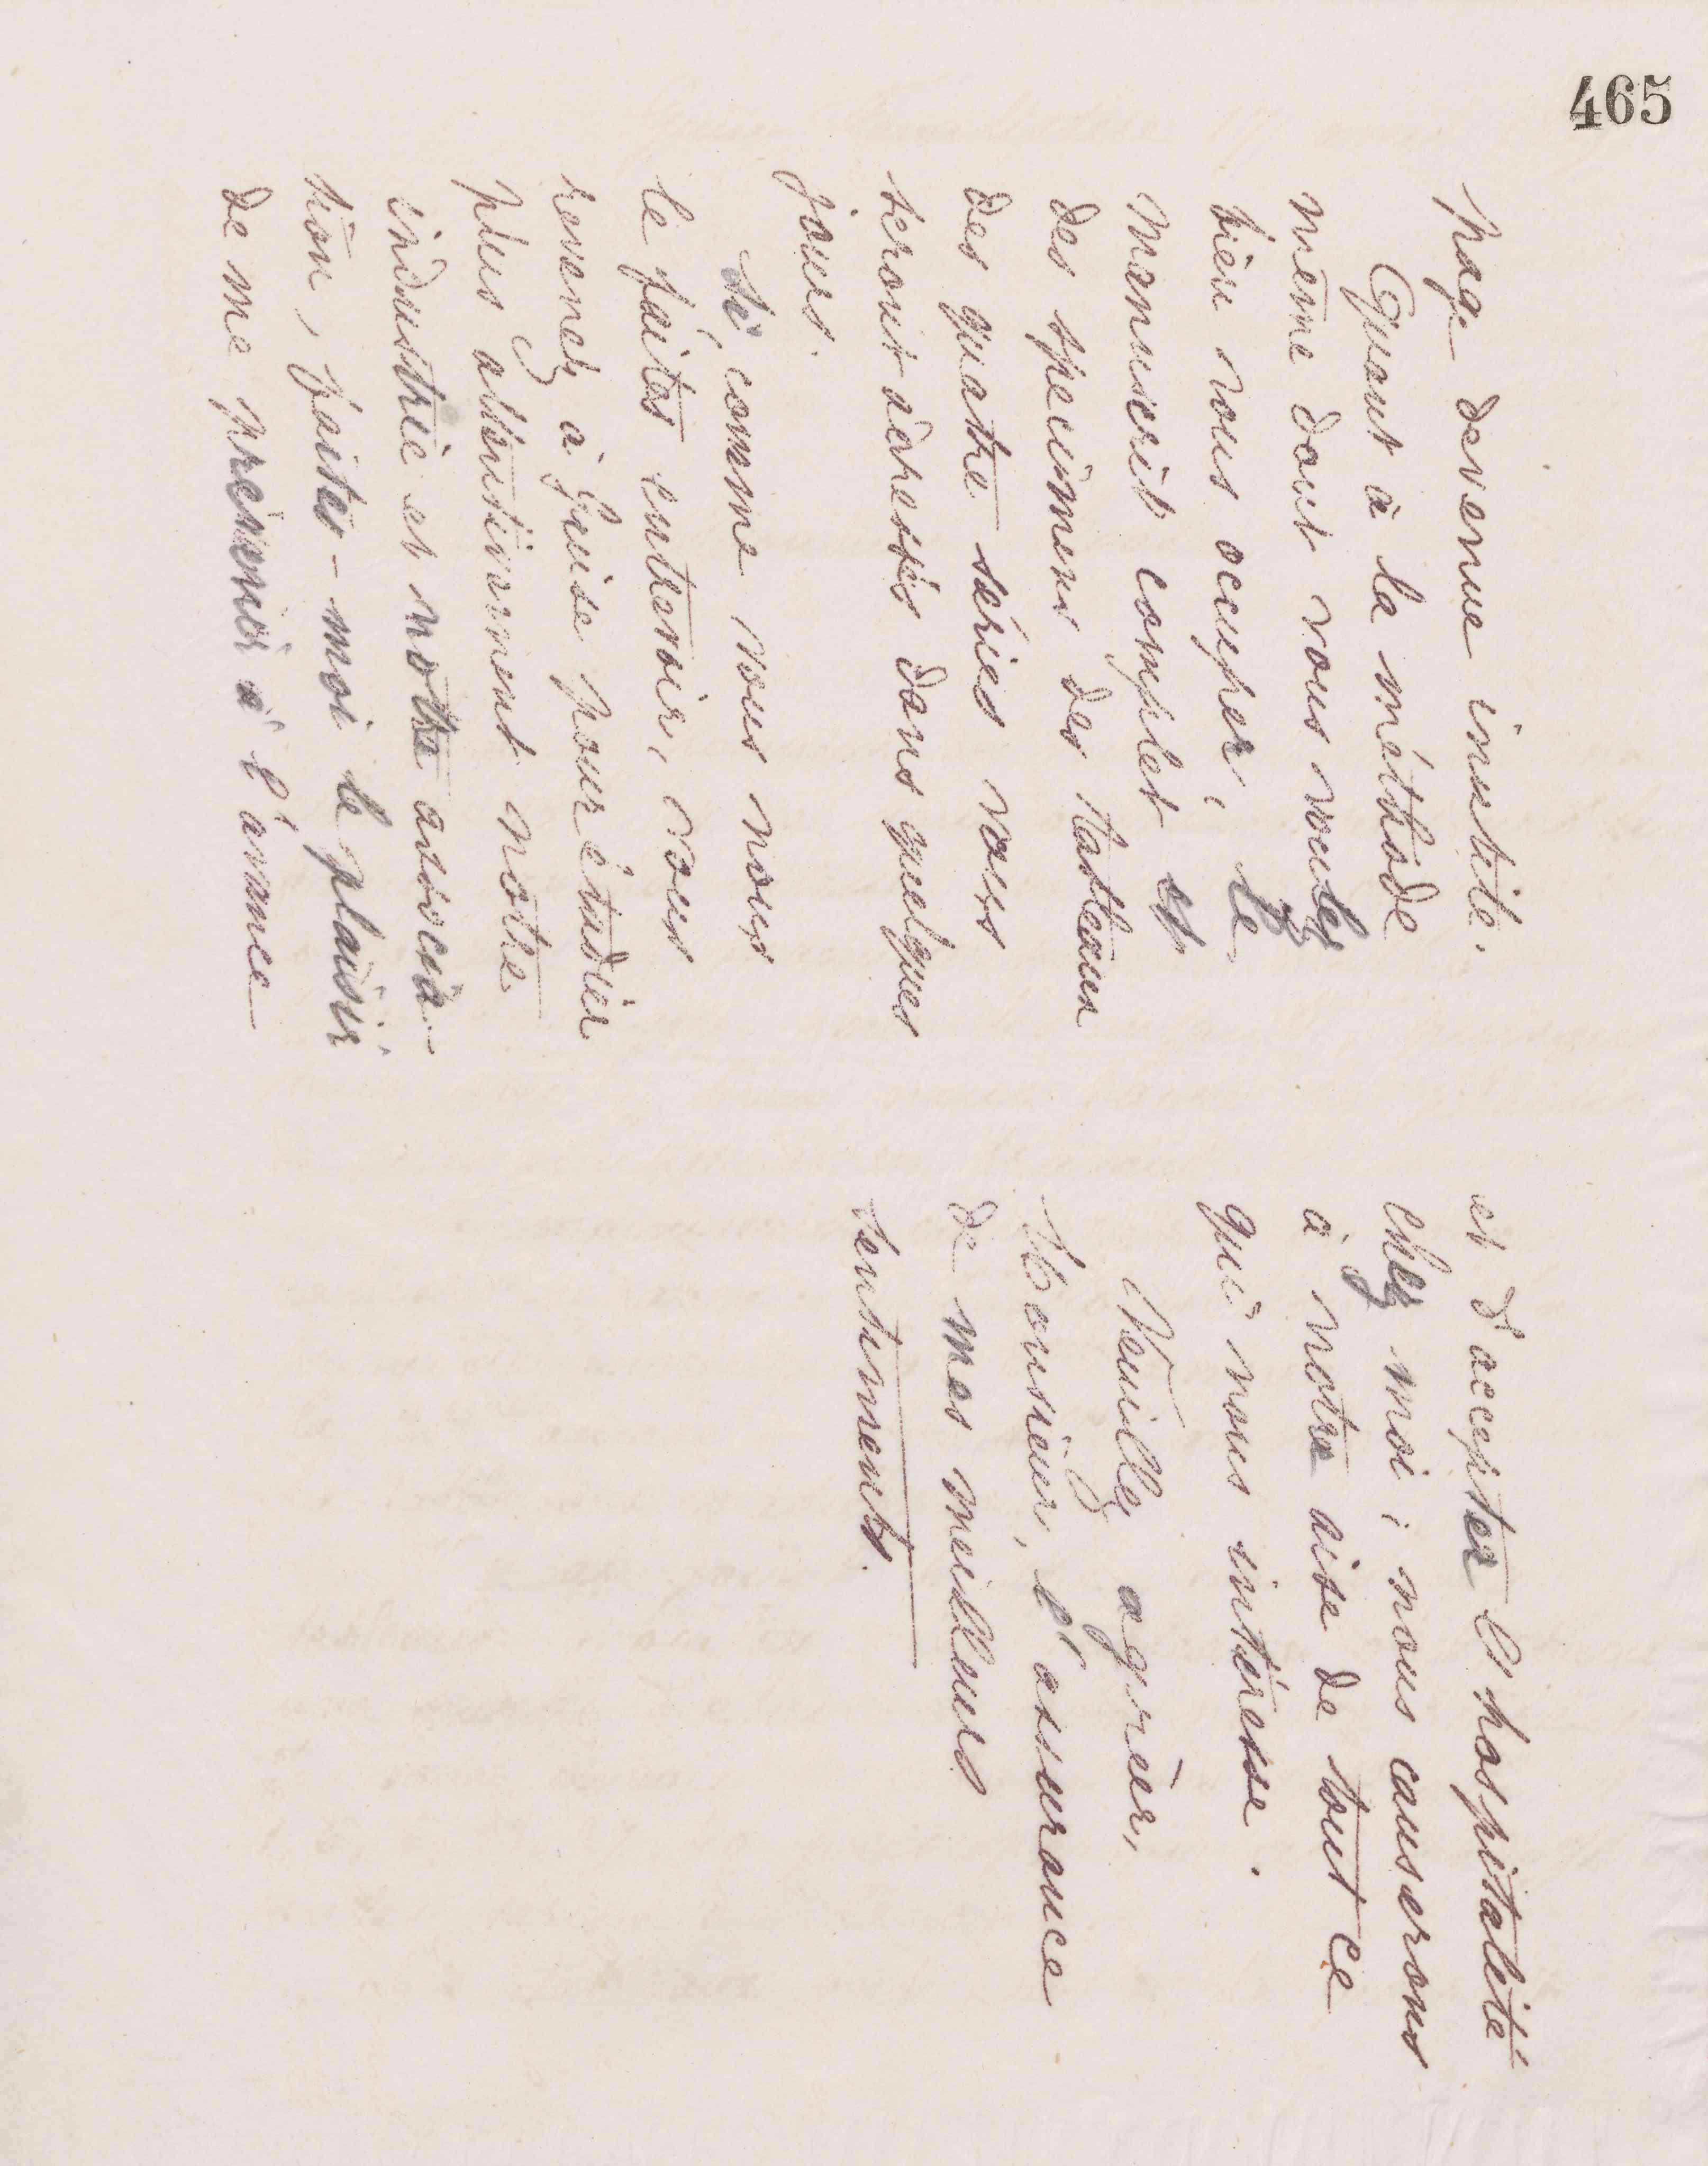 465
page devenue inutile.
Quant à la méthode
même dont vous voulez
bien vous occuper, le
manuscrit complet et
des specimens des tableaux
des quatre séries vous
seront adressés dans quelques
jours.
Si comme vous nous
le faites entrevoir, vous
revenez à Guise pour étudier
plus attentivement notre
industrie et notre associa-
tion, faites-moi le plaisir
de me prévenir à l'avance
et d'accepter l'hospitalité
chez moi; nous causerons
à notre aise de tout ce
qui nous intéresse.
Veuillez agréer,
Monsieur, l'assurance
de mes meilleurs
sentiments.